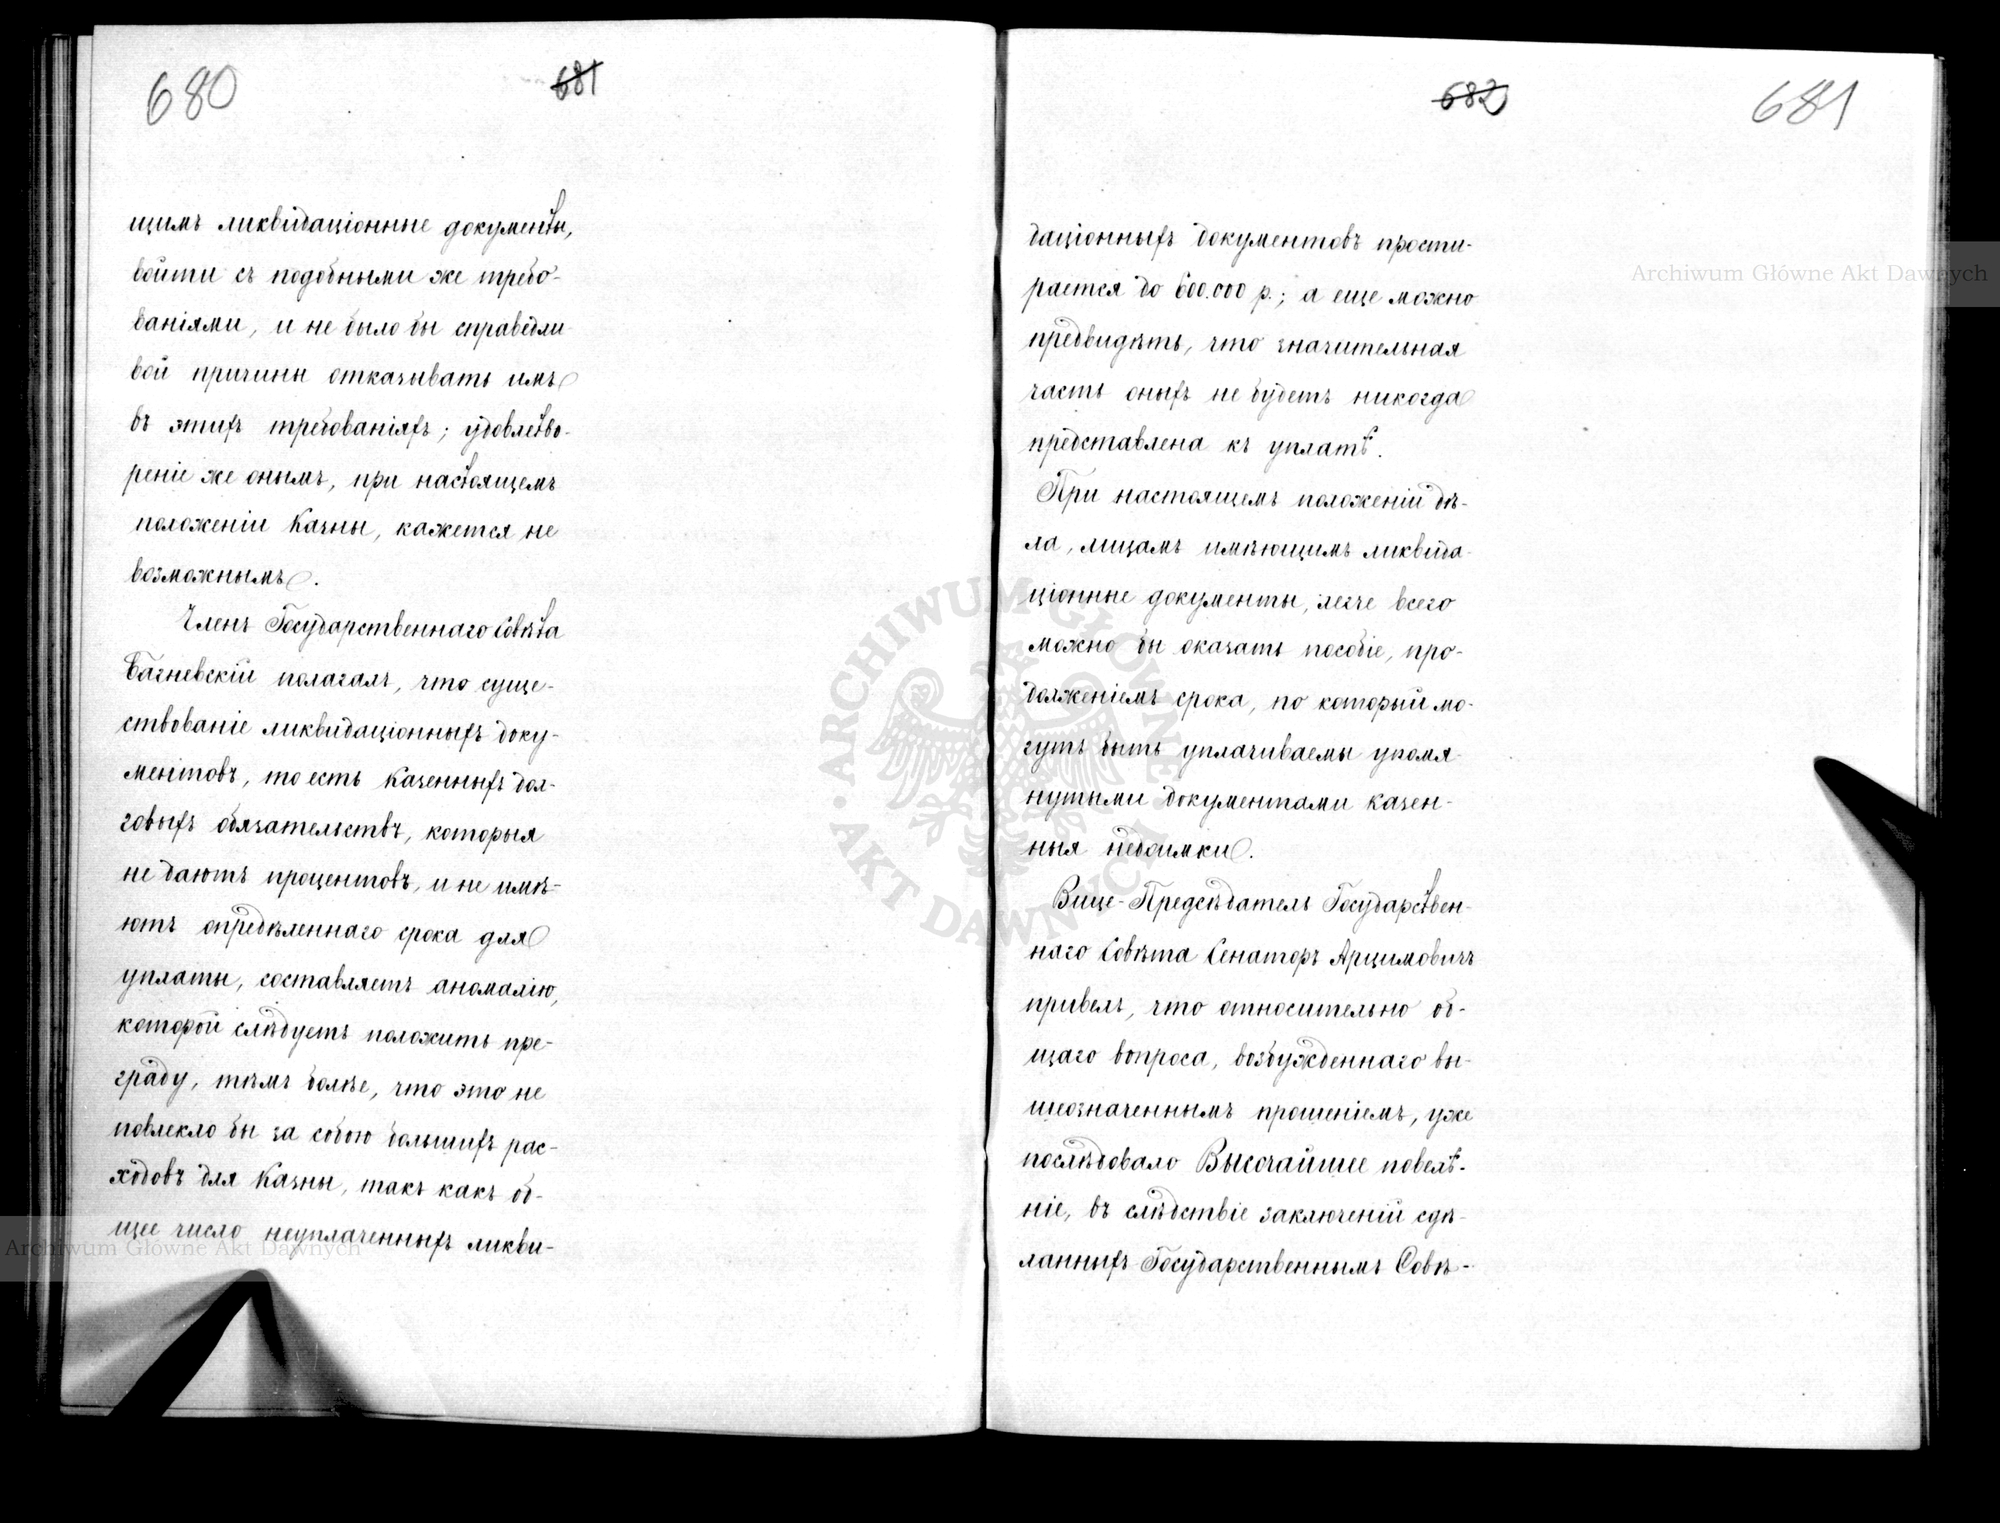 680
681
щимъ ликвидаціонные документы,
войти съ подобными же требо-
ваніями, и не было бы справедли
вой причины отказывать имъ
въ этихъ требованіяхъ; удовлетво-
реніе же онымъ, при настоящемъ
положеніи Казны, кажется не
возможнымъ.
Членъ Государственнаго Совѣта
Багневскій полагалъ, что суще-
ствованіе ликвидаціонныхъ доку-
ментовъ, то есть казенныхъ дол-
говыхъ обязательствъ, которыя
не даютъ процентовъ, и не имѣ-
ютъ опредѣленнаго срока для
уплаты, составляетъ аномалію,
которой слѣдуетъ положить пре-
граду, тѣмъ болѣе, что это не
повлекло бы за собою большихъ рас-
ходовъ для Казны, такъ какъ об-
щее число неуплаченныхъ ликви-
682
681
даціонныхъ документовъ прости-
рается до 600.000 р.; а еще можно
предвидѣть, что значительная
часть оныхъ не будетъ никогда
представлена къ уплатѣ.
При настоящемъ положеніи дѣ-
ла, лицамъ имѣющимъ ликвида-
ціонные документы, легче всего
можно бы оказать пособіе, про-
долженіемъ срока, по который мо-
гутъ быть уплачиваемы упомя-
нутыми документами казен-
ныя недоимки.
Вице-Предсѣдатель Государствен-
наго Совѣта Сенаторъ Арцимовичъ
привелъ, что относительно об-
щаго вопроса, возбужденнаго вы-
шеозначеннымъ прошеніемъ, уже
послѣдовало Высочайшее повелѣ-
ніе, въ слѣдствіе заключеній сдѣ-
ланныхъ Государственнымъ Совѣ-
Archiwum Główne Akt Dawnych
Archiwum Główne Akt Dawnych
ARCHIWUM GŁÓWNE AKT DAWNYCH